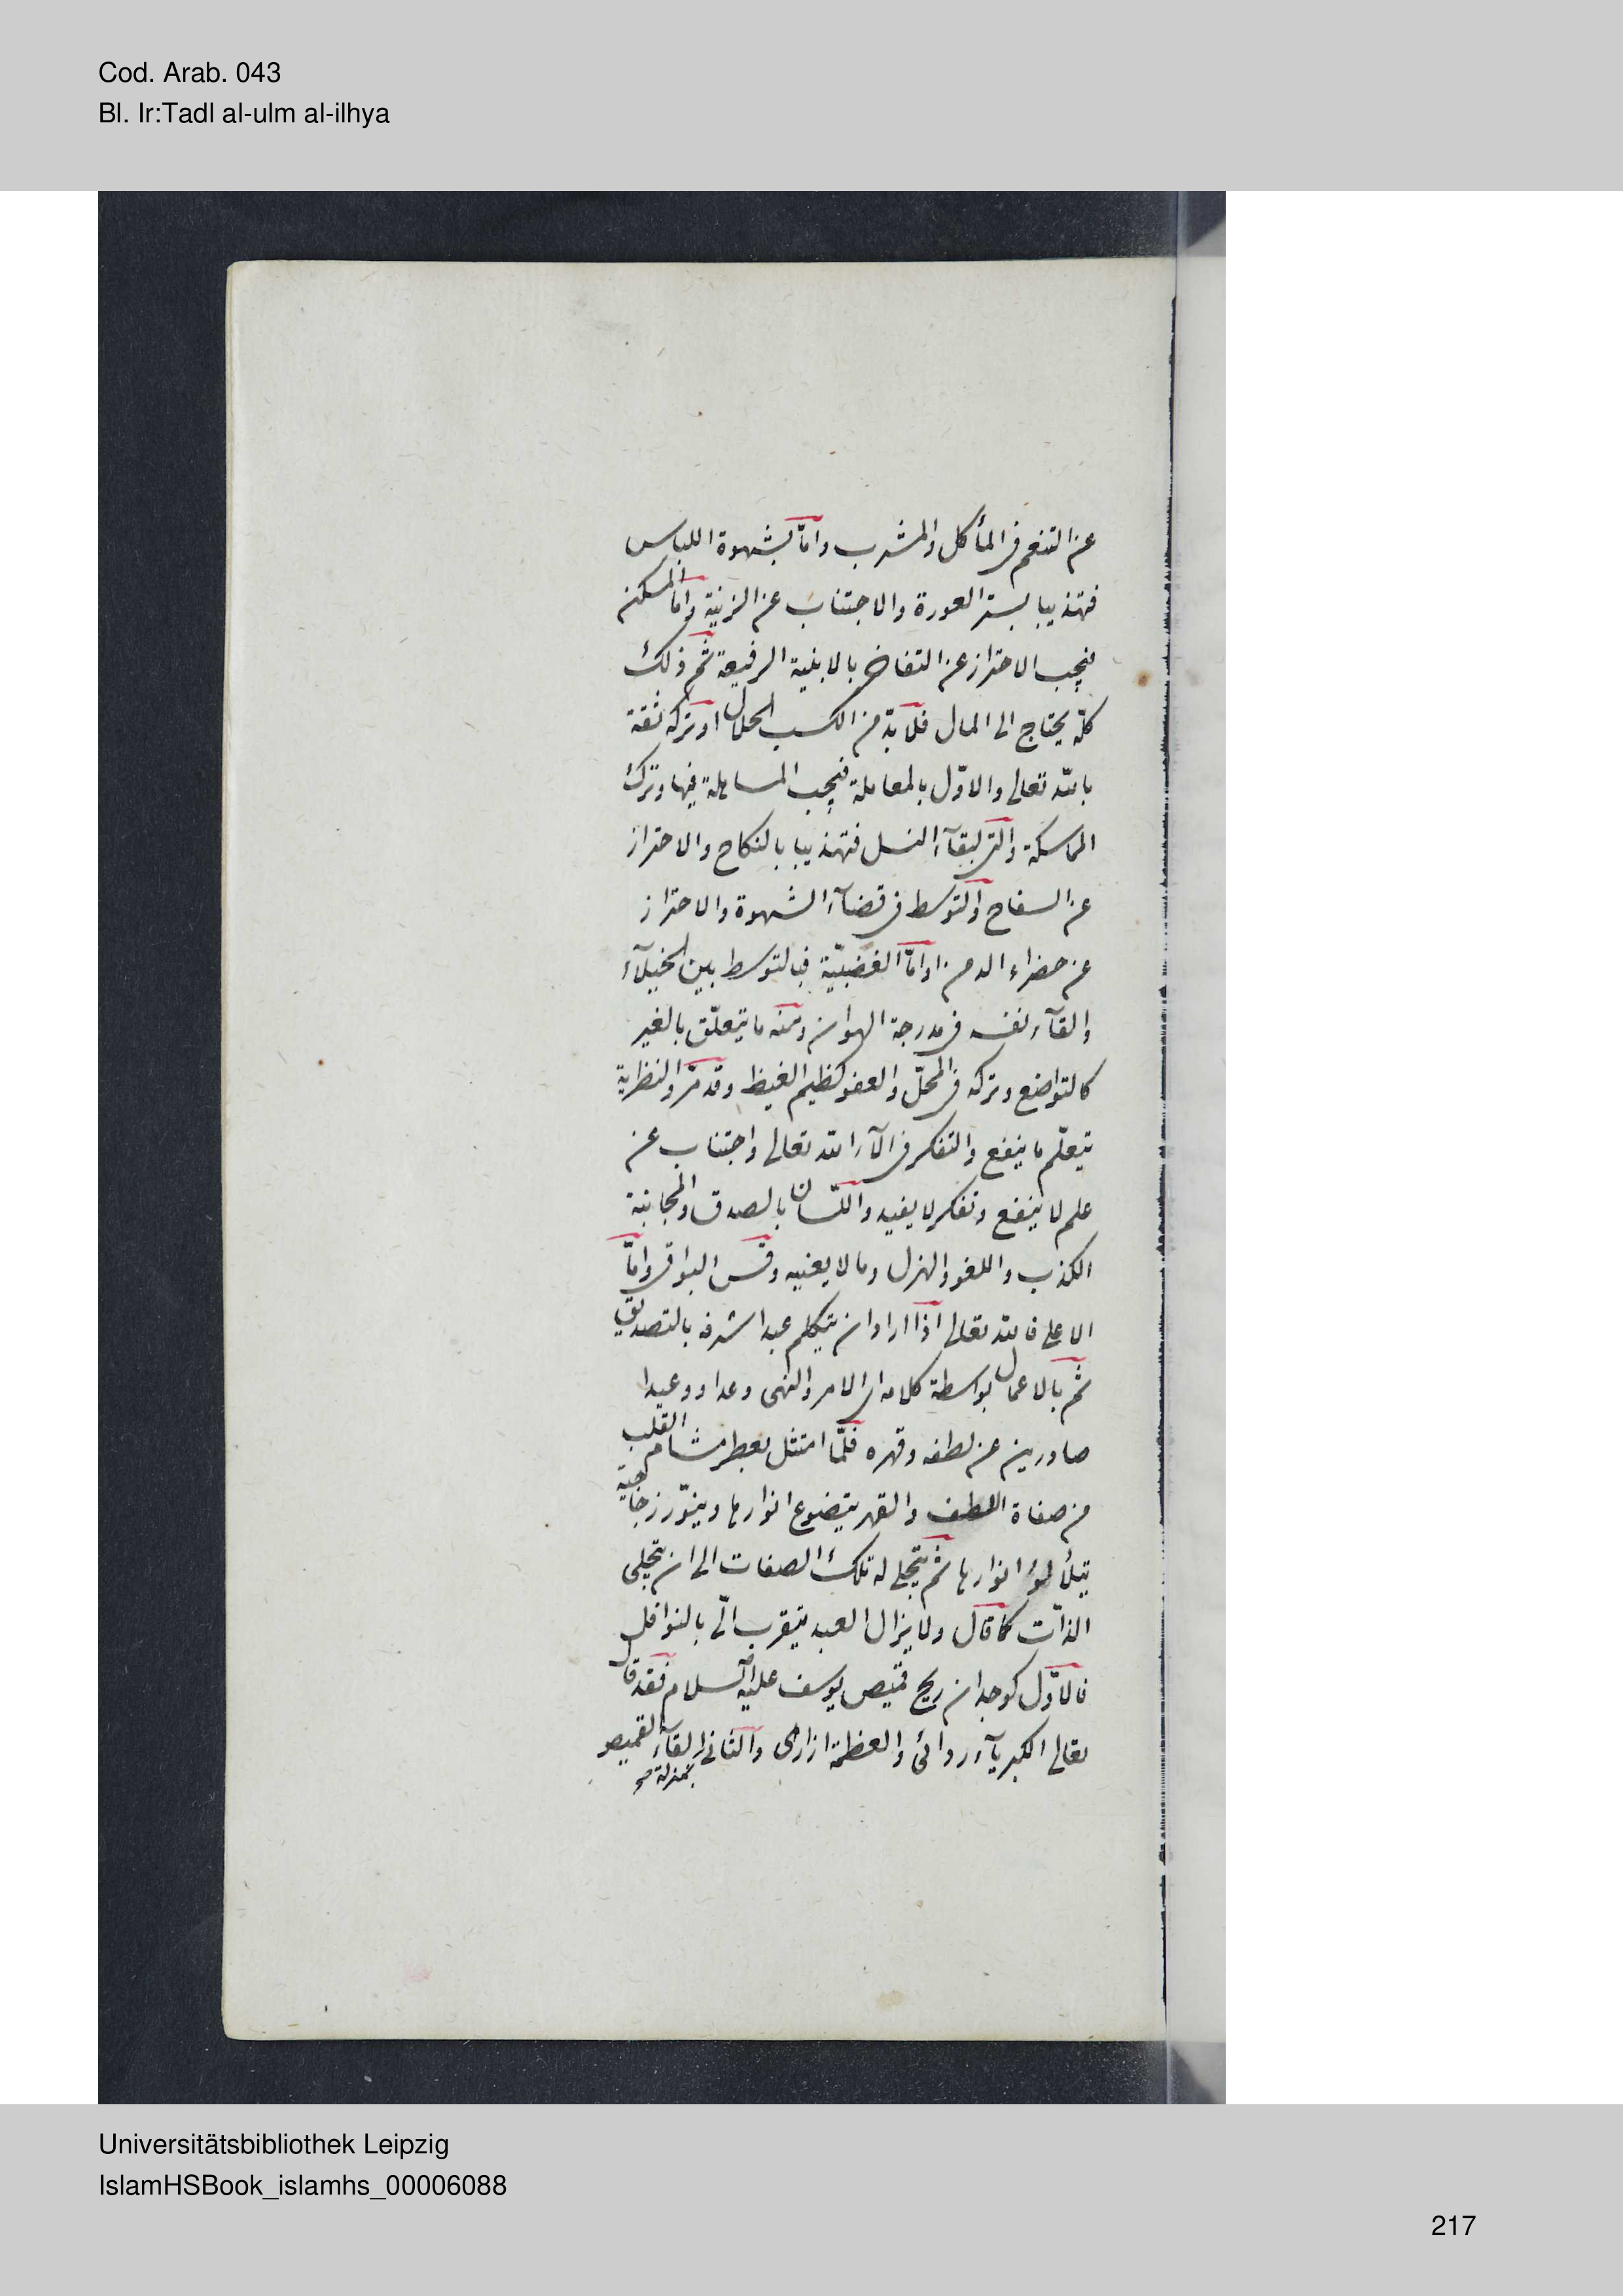 Cod. Arab. 043
Bl. Ir:Tadl al-ulm al-ilhya
عن التنعم في المأكل والمشرب وامّا لشهوة اللباس
فتهذيبها بستر العورة والاجتناب عن الزينة واما المسكن
فيجب الاحتراز عن التفاخر بالابنية الرفيعة ثم ذلك
كلّه يحتاج الى المال فلا بدّ من الكسب الحلال او تركه ثقة
بالله تعالى والاوّل بالمعاملة فيجب المساهلة فيها وترك
المماسكة والتي لبقآء النسل فتهذيبها بالنكاح والاحتراز
عن السفاح والتوسط في قضآء الشهوة والاحتراز
عن خضراء الدمن وامّا الغضبيّة فبالتوسط بين الخيلآء
والقآء نفسه في مدرجة الهوان ومنه ما يتعلّق بالغير
كالتواضع وتركه في المحلّ والعفو وكظم الغيظ وقد مرّ والنظرية
بتعلّم ما ينفع والتفكر في الآء الله تعالى واجتناب عن
علم لا ينفع وتفكر لا يفيد واللسان بالصدق والمجانبة
الكذب واللغو والهزل وما لا يعنيه وقس البواقي وامّا
الاعلى فالله تعالى اذا اراد ان يتكلم عبدا شرفه بالتصديق
ثم بالاعمال بواسطة كلامه اي الامر والنهى وعدا ووعيدا
صادرين عن لطفه وقهره فلمّا امتثل يعطر مشام القلب
من صفاة اللطف والقهر يتضوع انوارها وينوّر زجاجية
يتلألؤ انوارها ثم يتجلى له تلك الصفات الى ان يتجلى
الذات كما قال ولا يزال العبد يتقرب الىّ بالنوافل
فالاوّل كوجدان ريح قميص يوسف عليه السلام فقد قال
تعالى الكبريآء ردائي والعظمة ازارى والثاني القآء القميص
بمنزلة صح
Universitätsbibliothek Leipzig
IslamHSBook_islamhs_00006088
217